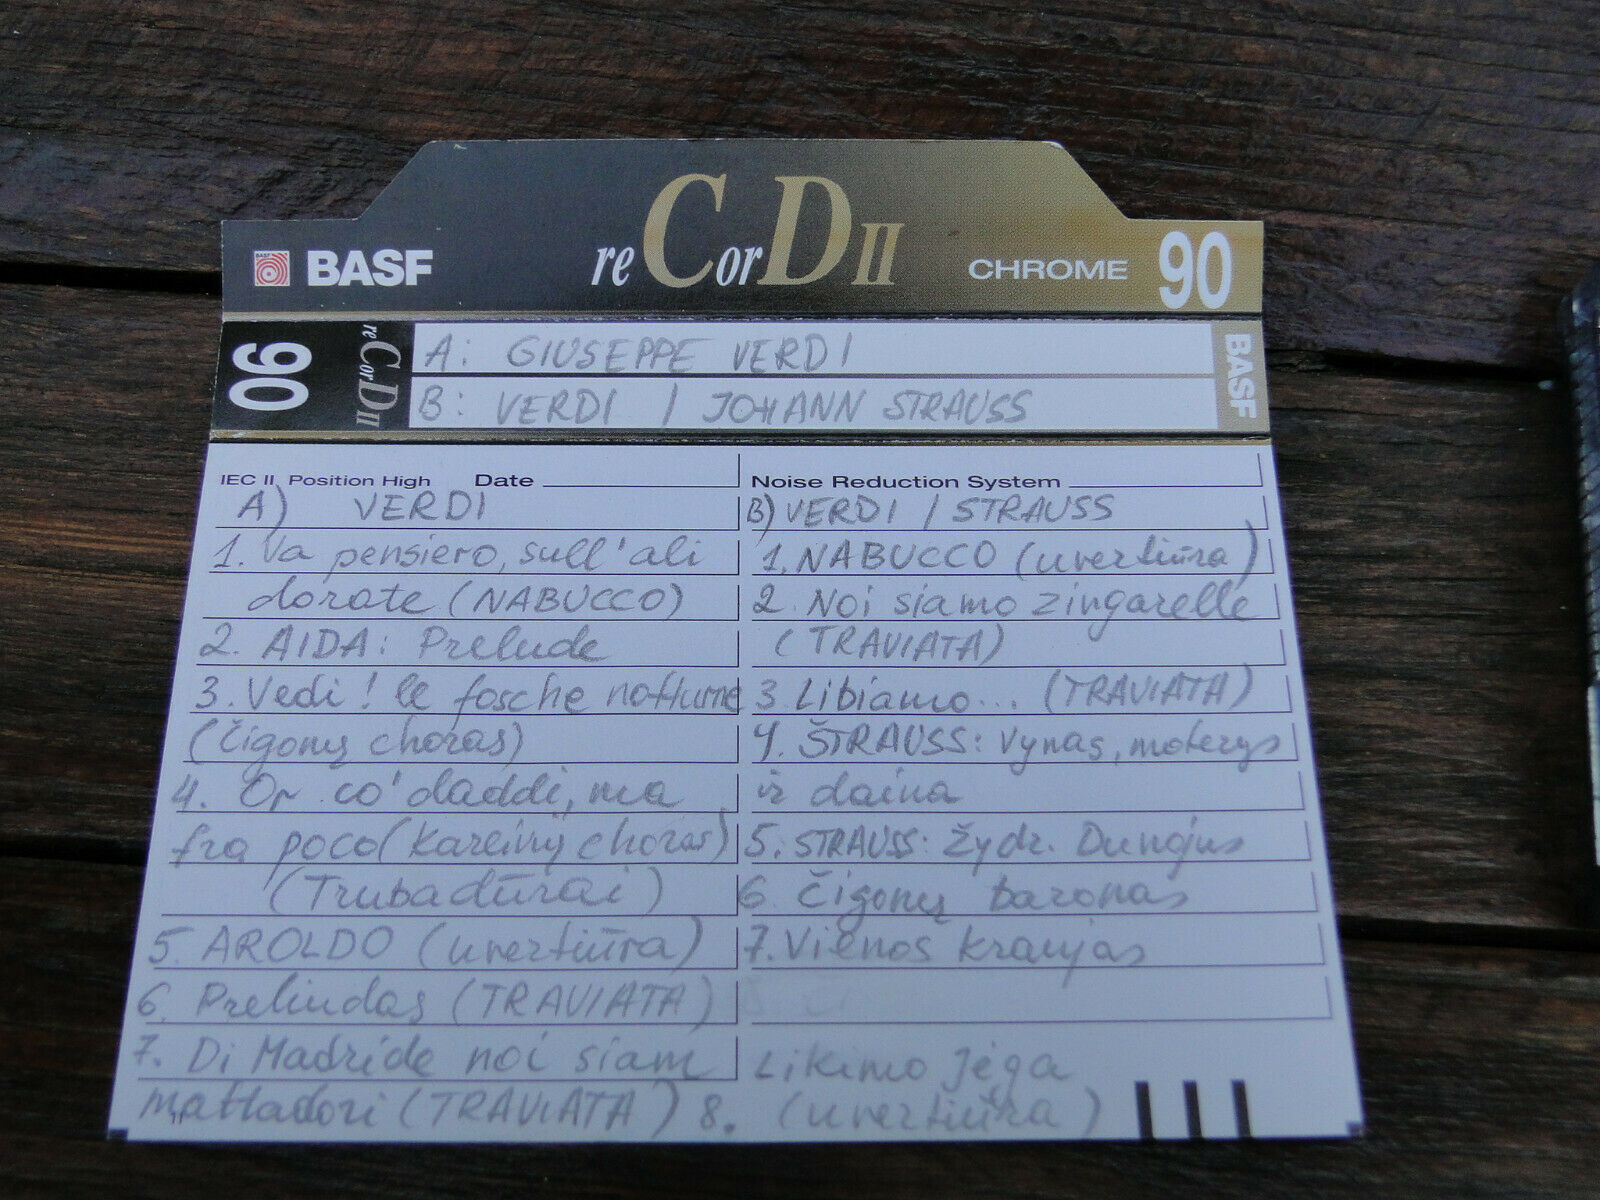 BASF reCorD II CHROME 90
90 reCorD II
A: GIUSEPPE VERDI
B: VERDI / JOHANN STRAUSS
BASF
IEC II Position High Date
A) VERDI
1. Va pensiero, sull'ali
dorate (NABUCCO)
2. AIDA: Prelude
3. Vedi! le fosche notturne
(Čigonų choras)
4. Or co' daddi, ma
fra poco (Kareivių choras)
(Trubadūrai)
5. AROLDO (uvertiūra)
6. Preliudas (TRAVIATA)
7. Di Madride noi siam
mattadori (TRAVIATA)
Noise Reduction System
B) VERDI / STRAUSS
1. NABUCCO (uvertiūra)
2. Noi siamo zingarelle
(TRAVIATA)
3. Libiamo... (TRAVIATA)
4. ŠTRAUSS: Vynas, moterys
ir daina
5. STRAUSS: Žydr. Dunojus
6. Čigonų baronas
7. Vienos kraujas
Likimo Jėga
8. (uvertiūra)